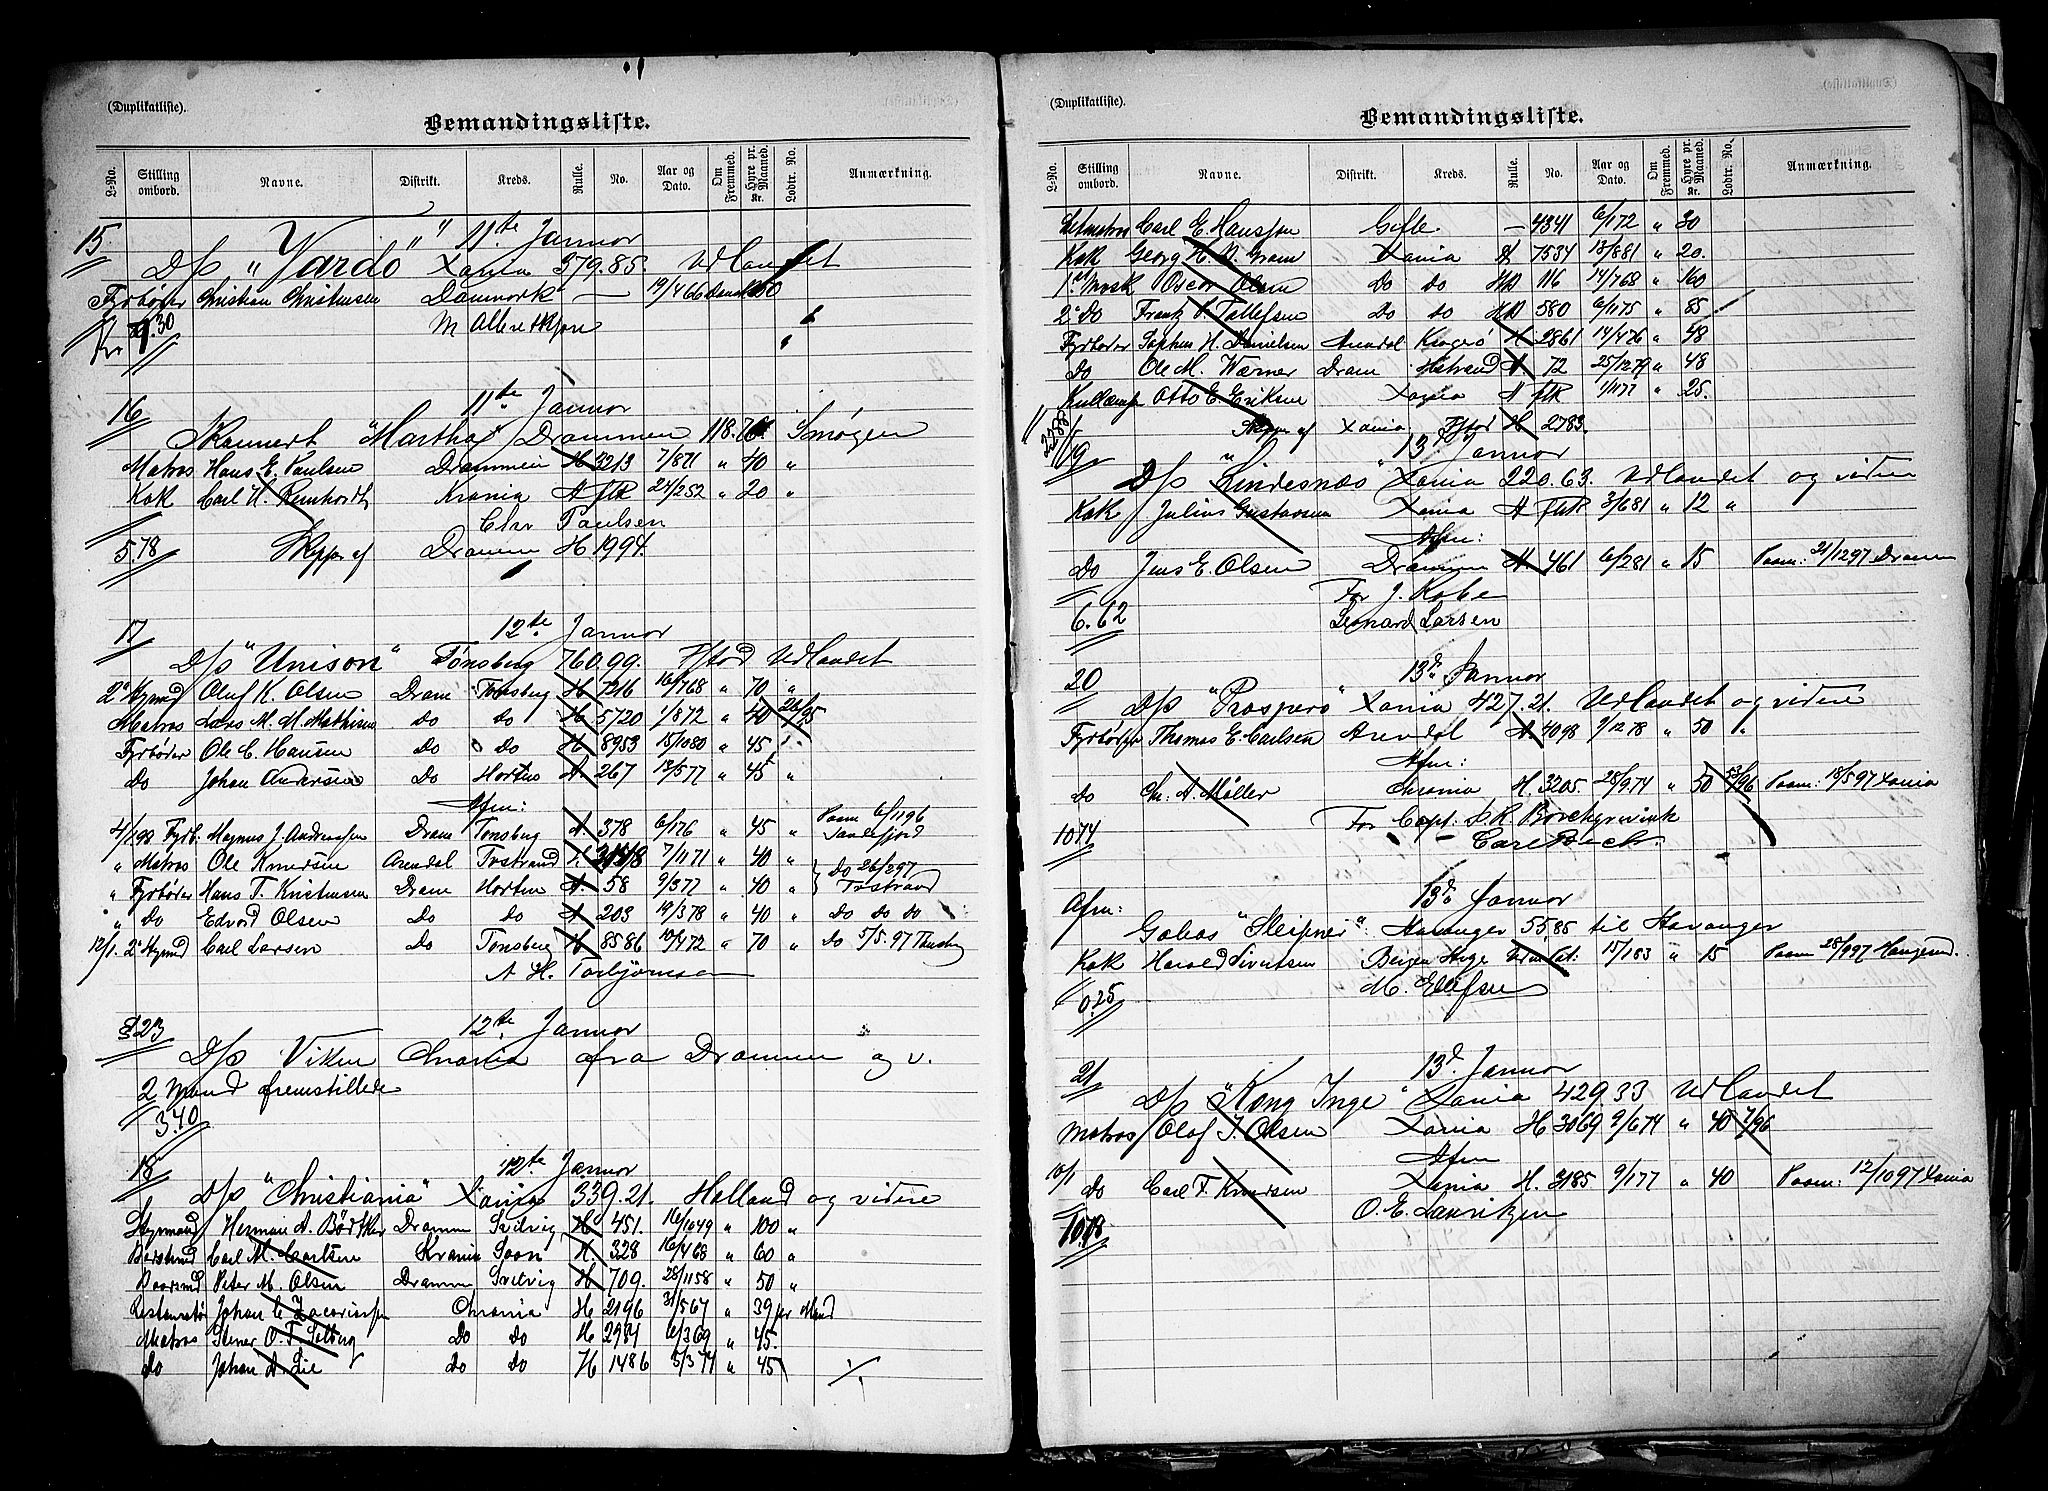 (Duplikatliste).
Bemandingsliste.
L-No. Stilling ombord. Navne. Distrikt. Kreds. Rulle. No. Aar og Dato. Om Fremmed. Hyre pr. Maaned. Kr. Lodtr. No. Anmærkning.
15 11te Januar
D/s "Vardö" Xania 379.85. Udlandet
Fyrböder Christian Christensen Danmark — 19/4 66 Dansk
Kr 9.30
16 11te Januar
Skonnert "Martha" Drammen 118. Smøgen
Matros Hans E. Paulsen Drammen H 3213 7/8 71 " 40 "
Kok Carl H. Reinhardt Krania A ftR 24/2 52 " 20 "
Chr Paulsen
5.78 Skipper af Dramm H 1994.
17 12te Januar
D/s "Unison" Tønsberg 760.99. Ftod Udlandet
2d Stymd Oluf K. Olsen Dram Tonsberg H 7216 16/7 68 " 70 "
Matros Lars M. M. Mathisen do do H 5720 1/8 72 " 40 26/95
Fyrböder Ole C. Hansen Do Do H 8953 15/10 80 " 45
Do Johan Andersen Do Horten A 267 13/5 77 " 45 "
Afm:
4/1 98 Fyrb. Magnus J. Andreassen Dram Tonsberg A 378 6/1 76 " 45 " Paam 6/11 96 Sandefjord
" Matros Ole Knudsen Arendal Tvstrand 7/11 71 " 40 " Do 26/2 97 Tvstrand
" Fyrböder Hans T. Kristensen Dram Horten A. 58 9/3 77 " 40 "
" Do Edvard Olsen Do do A 203 19/3 78 " 40 " Do do do
12/1. 2d Stymd Carl Larsen Do Tonsberg H 8586 10/4 72 " 70 " Do 5/5.97 Tnsbg
A H. Torbjörnsen
23 12te Januar
D/s Viken Chrania fra Drammen og v.
2 Mand fremstillede
3.40
18 12te Januar
D/s "Christiania" Xania 339.21. Holland og videre
Styrmand Herman A. Bödtker Dramm Svelvig H 451. 16/10 49 " 100 "
Carl M. Carlsen Krania Soon H. 328 16/4 68 " 60 "
Peter M. Olsen Dramm Svelvig H 709. 28/11 58 " 50 "
Johan C. Zacariassen Chrania H 2196 31/5 67 " 39 per Maand
Matros Stener O. T. Solberg Do Do H 2981 6/3 69 " 45.
Do Johan A. Lie Do Do H 1486 3/3 74 " 45
(Duplikatliste).
Bemandingsliste.
L-No. Stilling ombord. Navne. Distrikt. Kreds. Rulle. No. Aar og Dato. Om Fremmed. Hyre pr. Maaned. Kr. Lodtr. No. Anmærkning.
Letmatros Carl E. Hansson Gefle — 4341 6/1 72 " 30
Kok Georg H. N. Gram Xania A 7534 13/8 81 " 20.
1ste Mask Oscar Olsen Do do HA 116 14/7 68 " 160
2d Do Frantz O. Tellefsen Do do HA 580 6/1 75 " 85
Fyrböder Sophus H. Danielsen Arendal Kragerö H. 2861 14/4 76 " 48
Do Ole M. Wærner Dram Hstrand A. 72 25/12 79 " 48
Kullemp Otto E. Eriksen Xania A ftR 1/11 77 " 25.
Skipper af Xania Ftod H 2783.
19 13d Januar
D/s "Lindesnæs" Xania 220.63. Udlandet og videre
Kok Julius Gustavsen Xania A ftR 3/6 81 " 12 "
Afm:
Do Jens E. Olsen Dramm A. 461 6/2 81 " 15 Paam: 21/12 97 Dramm
For J. Robe
6.62 Leonard Larsen
20 13d Januar
D/s "Prospero" Xania 427.21. Udlandet og videre
Fyrböder Thomas E. Carlsen Arendal A. 4098 9/12 78 " 50 "
Afm:
do Chr. A. Möller Chrania H. 3205. 28/9.74 " 50 53/96 Paam: 18/5 97 Xania
For Capt. L R Borchgrevink
10.74 Carl Bech.
13d Januar
Afm:
Galeas "Sleipner" Stavanger 55.85 til Stavanger
Kok Harald Sivertsen Bergen Hge 15/1 83 " 15 Paam 28/9 97 Haugesund.
0.25 M. Ellefsen
21 13d Januar
D/s "Kong Inge" Xania 429.33 Udlandet
Matros Olaf J. Olsen Xania H 3069 9/6 74 " 40 7/96
Afm
10/1 do Carl T. Knudsen Xania H. 3185 9/1 77 " 40 Paam: 12/10 97 Xania
O. E. Lauritzen
10.78